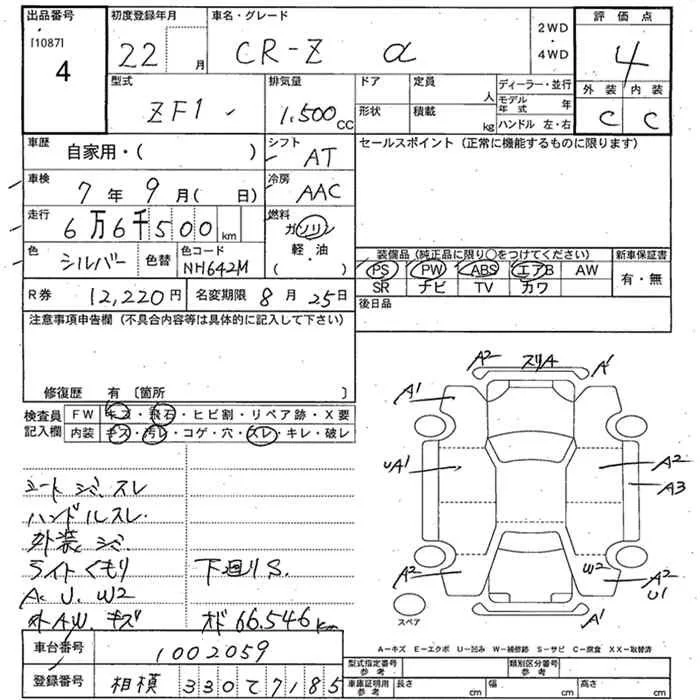 出品番号 初度登録年月 車名・グレード 2WD・4WD 評価点
[1087]
4 22 月 CR-Z α 4
型式 排気量 ドア 定員 人 ディーラー・並行 外装 内装
ZF1 1,500 CC 形状 積載 kg モデル年式 年 C C
ハンドル 左・右
車歴 自家用・( ) シフト AT セールスポイント (正常に機能するものに限ります)
車検 7年 9月( 日) 冷房 AAC
走行 6万6千500 km 燃料 ガソリン
軽・油
( ・ )
色 シルバー 色替 色コード NH642M
装備品 (純正品に限り○をつけてください) 新車保証書
PS PW ABS エアB AW 有・無
SR ナビ TV カワ
R券 12,220円 名変期限 8月25日 後日品
注意事項申告欄 (不具合内容等は具体的に記入して下さい)
修復歴 有 〔箇所 〕
検査員記入欄 FW キズ・飛石・ヒビ割・リペア跡・X要
内装 キズ・汚レ・コゲ・穴・スレ・キレ・破レ
A2 スリA A1
A1 A1
UA1 A2
A3
A2 W2 A2
U1
A1
スペア
シート シミ、スレ
ハンドルスレ.
外装 シミ
ライトくもり 下廻りS.
A. U. W2
外A.W. キズ オド 66.546 km
A-キズ E-エクボ U-凹み W-補修跡 S-サビ C-腐食 XX-取替済
車台番号 1002059
登録番号 相模 330 て 7185
型式指定番号 参考 類別区分番号 参考
車庫証明用 参考 長さ cm 幅 cm 高さ cm